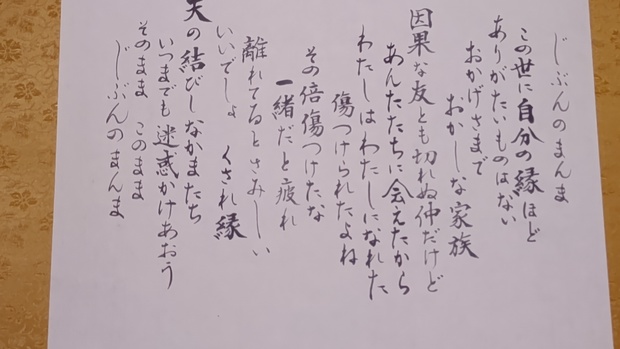 じぶんのまんま
この世に自分の縁ほど
ありがたいものはない
おかげさまで
おかしな家族
因果な友とも切れぬ仲だけど
あんたたちに会えたから
わたしはわたしになれた
傷つけられたよね
その倍傷つけたな
一緒だと疲れ
離れてるとさみしい
いいでしょ　くされ縁
天の結びしなかまたち
いつまでも迷惑かけあおう
そのまま　このまま
じぶんのまんま